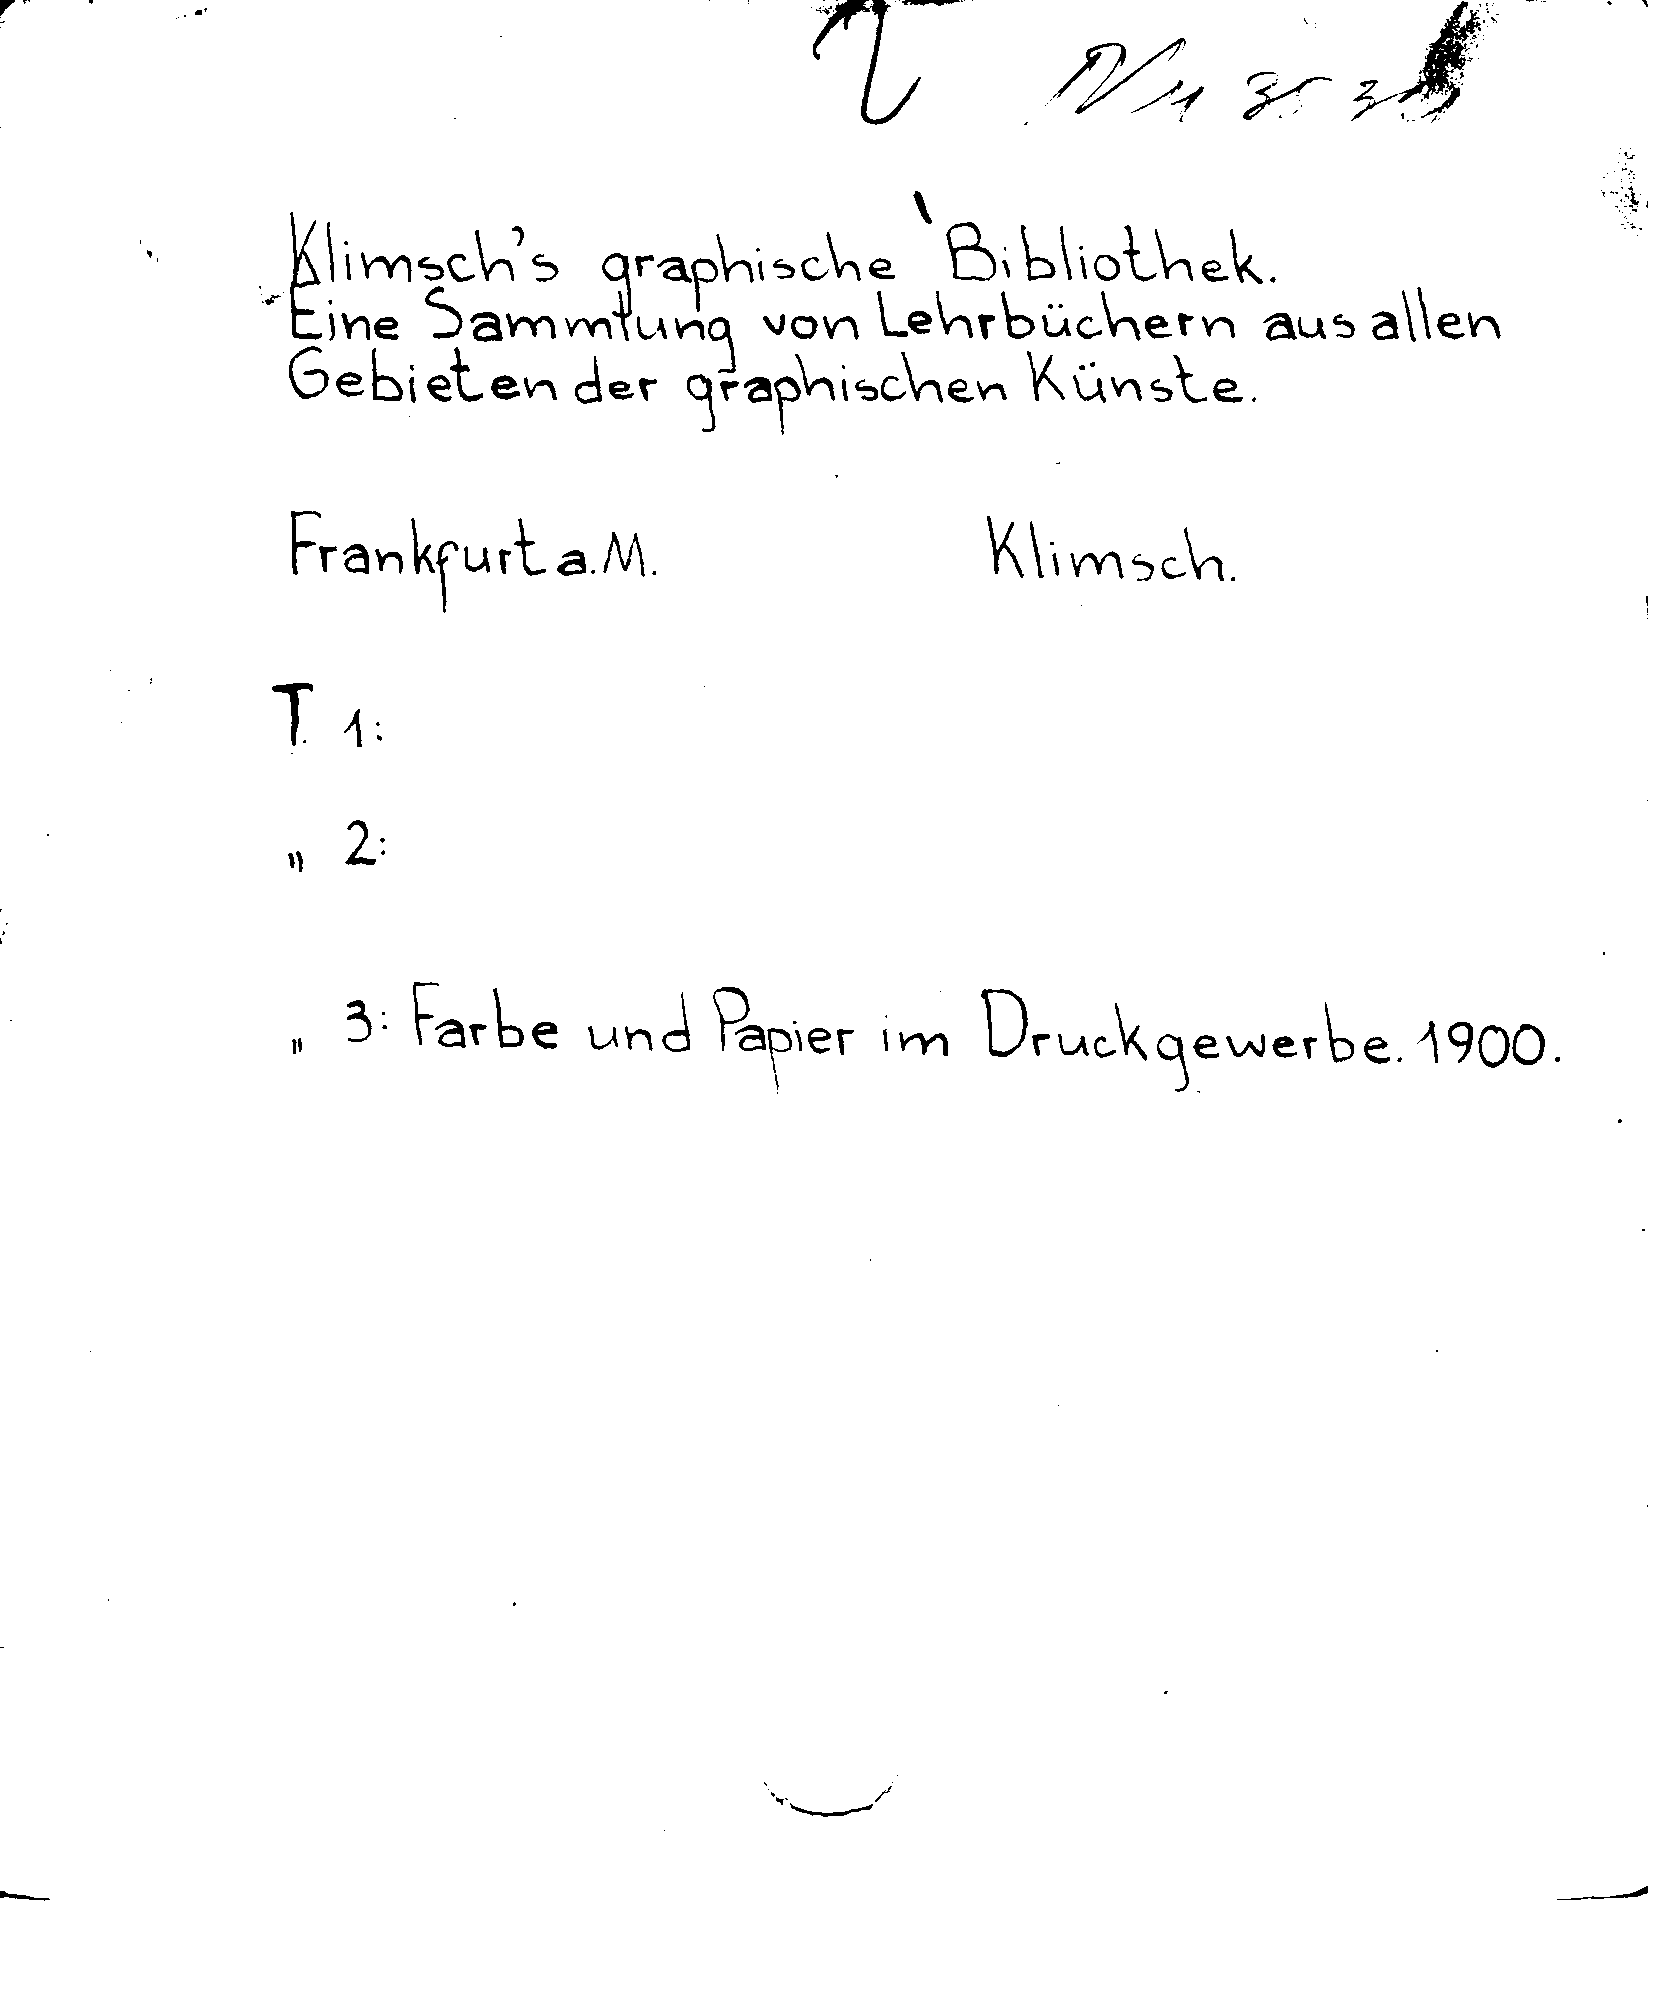 Klimsch's graphische Bibliothek.
Eine Sammlung von Lehrbüchern aus allen
Gebieten der graphischen Künste.
Frankfurt a. M. Klimsch.
T. 1:
„ 2:
„ 3: Farbe und Papier im Druckgewerbe. 1900.